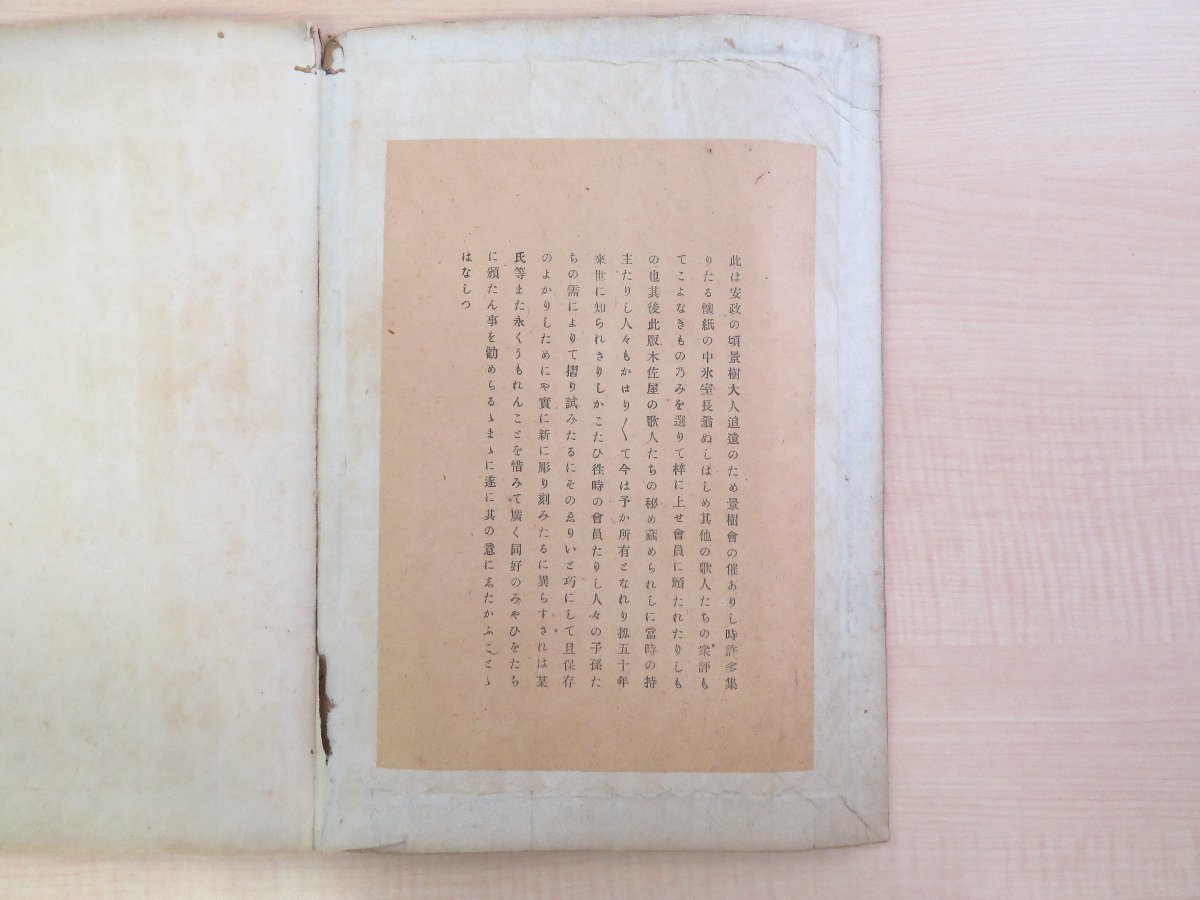 此は安政の頃景樹大人追遠のため景樹會の催ありし時許多集
りたる懷紙の中氷室長翁ぬしはしめ其他の歌人たちの衆評も
てこよなきもの乃みを選りて梓に上せ會員に頒たれたりしも
の也其後此版木佐屋の歌人たちの秘め藏められしに當時の持
主たりし人々もかはり〱て今は予か所有となれり抑五十年
來世に知られさりしかこたひ徃時の會員たりし人々の子孫た
ちの需によりて摺り試みたるにそのゑりいと巧にして且保存
のよかりしためにや實に新に彫り刻みたるに異らすされは某
氏等また永くうもれんことを惜みて廣く同好のみやひをたち
に頒たん事を勸めらるゝまゝに遂に其の意にゑたかふことゝ
はなしつ